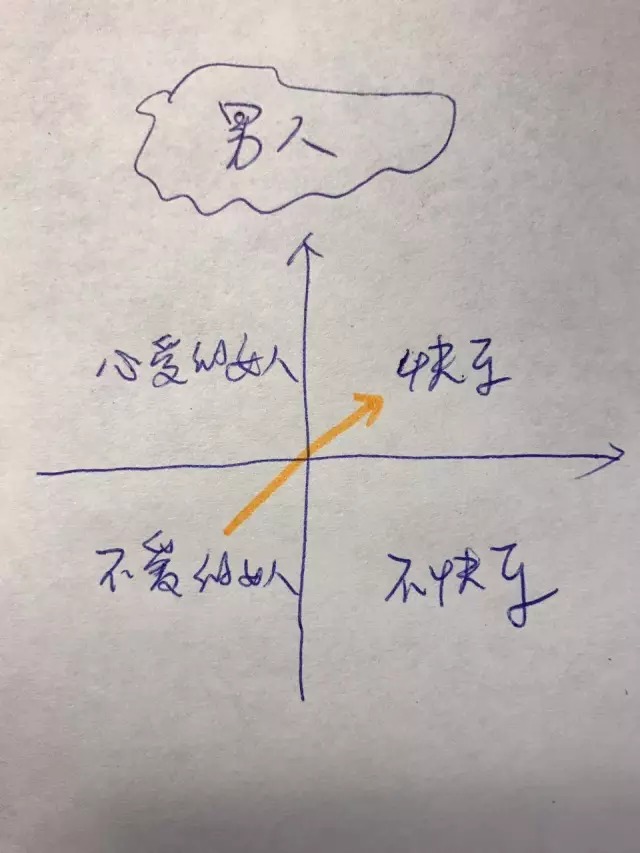 男人
心爱的女人
快乐
不爱的女人
不快乐